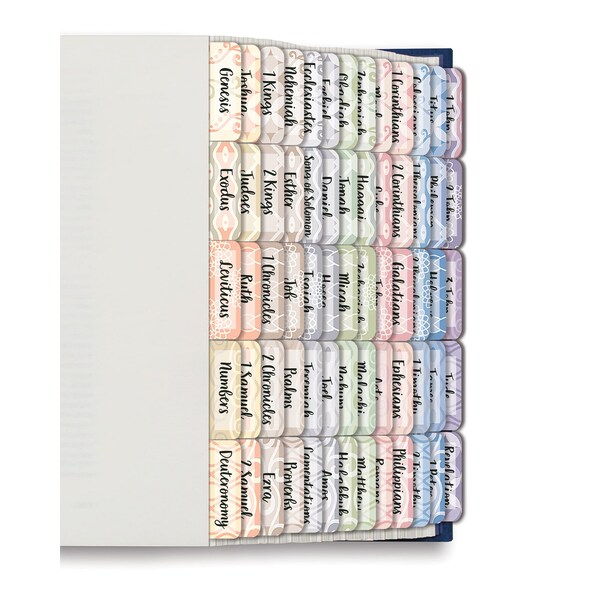 Genesis
Exodus
Leviticus
Numbers
Deuteronomy
Joshua
Judges
Ruth
1 Samuel
2 Samuel
1 Kings
2 Kings
1 Chronicles
2 Chronicles
Ezra
Nehemiah
Esther
Job
Psalms
Proverbs
Ecclesiastes
Song of Solomon
Isaiah
Jeremiah
Lamentations
Ezekiel
Daniel
Hosea
Joel
Amos
Obadiah
Jonah
Micah
Nahum
Habakkuk
Zephaniah
Haggai
Zechariah
Malachi
Matthew
Luke
John
Acts
Romans
1 Corinthians
2 Corinthians
Galatians
Ephesians
Philippians
Colossians
1 Thessalonians
2 Thessalonians
1 Timothy
2 Timothy
Titus
Philemon
Hebrews
James
1 Peter
1 John
2 John
3 John
Jude
Revelation